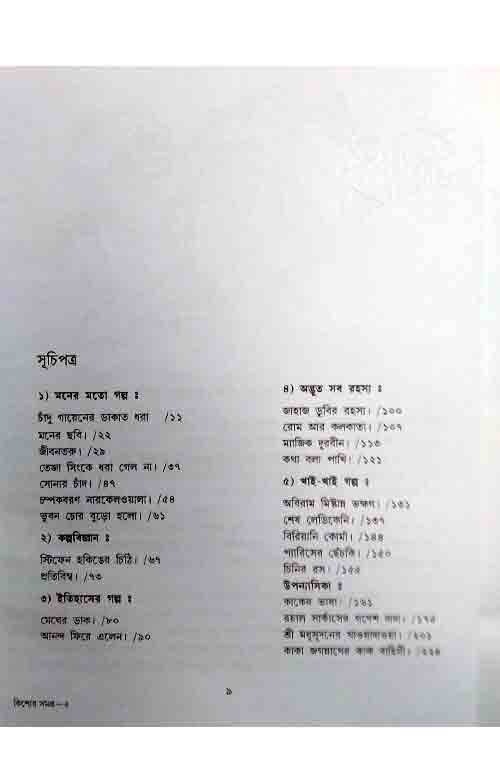 সূচিপত্র
১) মনের মতো গল্প ঃ
চাঁদু গায়েনের ডাকাত ধরা /১১
মনের ছবি। /২২
জীবনতরু। /২৯
তেজা সিংকে ধরা গেল না। /৩৭
সোনার চাঁদ। /৪৭
চম্পকবরণ নারকেলওয়ালা। /৫৪
ভুবন চোর বুড়ো হলো। /৬১
২) কল্পবিজ্ঞান ঃ
স্টিফেন হকিঙের চিঠি। /৬৭
প্রতিবিম্ব। /৭৩
৩) ইতিহাসের গল্প ঃ
মেঘের ডাক। /৮০
আনন্দ ফিরে এলেন। /৯০
৪) অদ্ভুত সব রহস্য ঃ
জাহাজ ডুবির রহস্য। /১০০
রোম আর কলকাতা। /১০৭
ম্যাজিক দূরবীন। /১১৩
কথা বলা পাখি। /১২১
৫) খাই-খাই গল্প ঃ
অবিরাম মিষ্টান্ন ভক্ষণ। /১৩১
শেষ লেডিকেনি। /১৩৭
বিরিয়ানি কোর্মা। /১৪৪
প্যারিসের ছেঁচকি। /১৫০
চিনির রস। /১৫৫
উপন্যাসিকা ঃ
কাকের ভাষা। /১৬১
রয়াল সার্কাসের গণেশ দাদা। /১৭৫
শ্রী মধুসূদনের খাওয়াদাওয়া। /২০১
কাকা জগন্নাথের কাক বাহিনী। /২২৪
৯
কিশোর সমগ্র—২